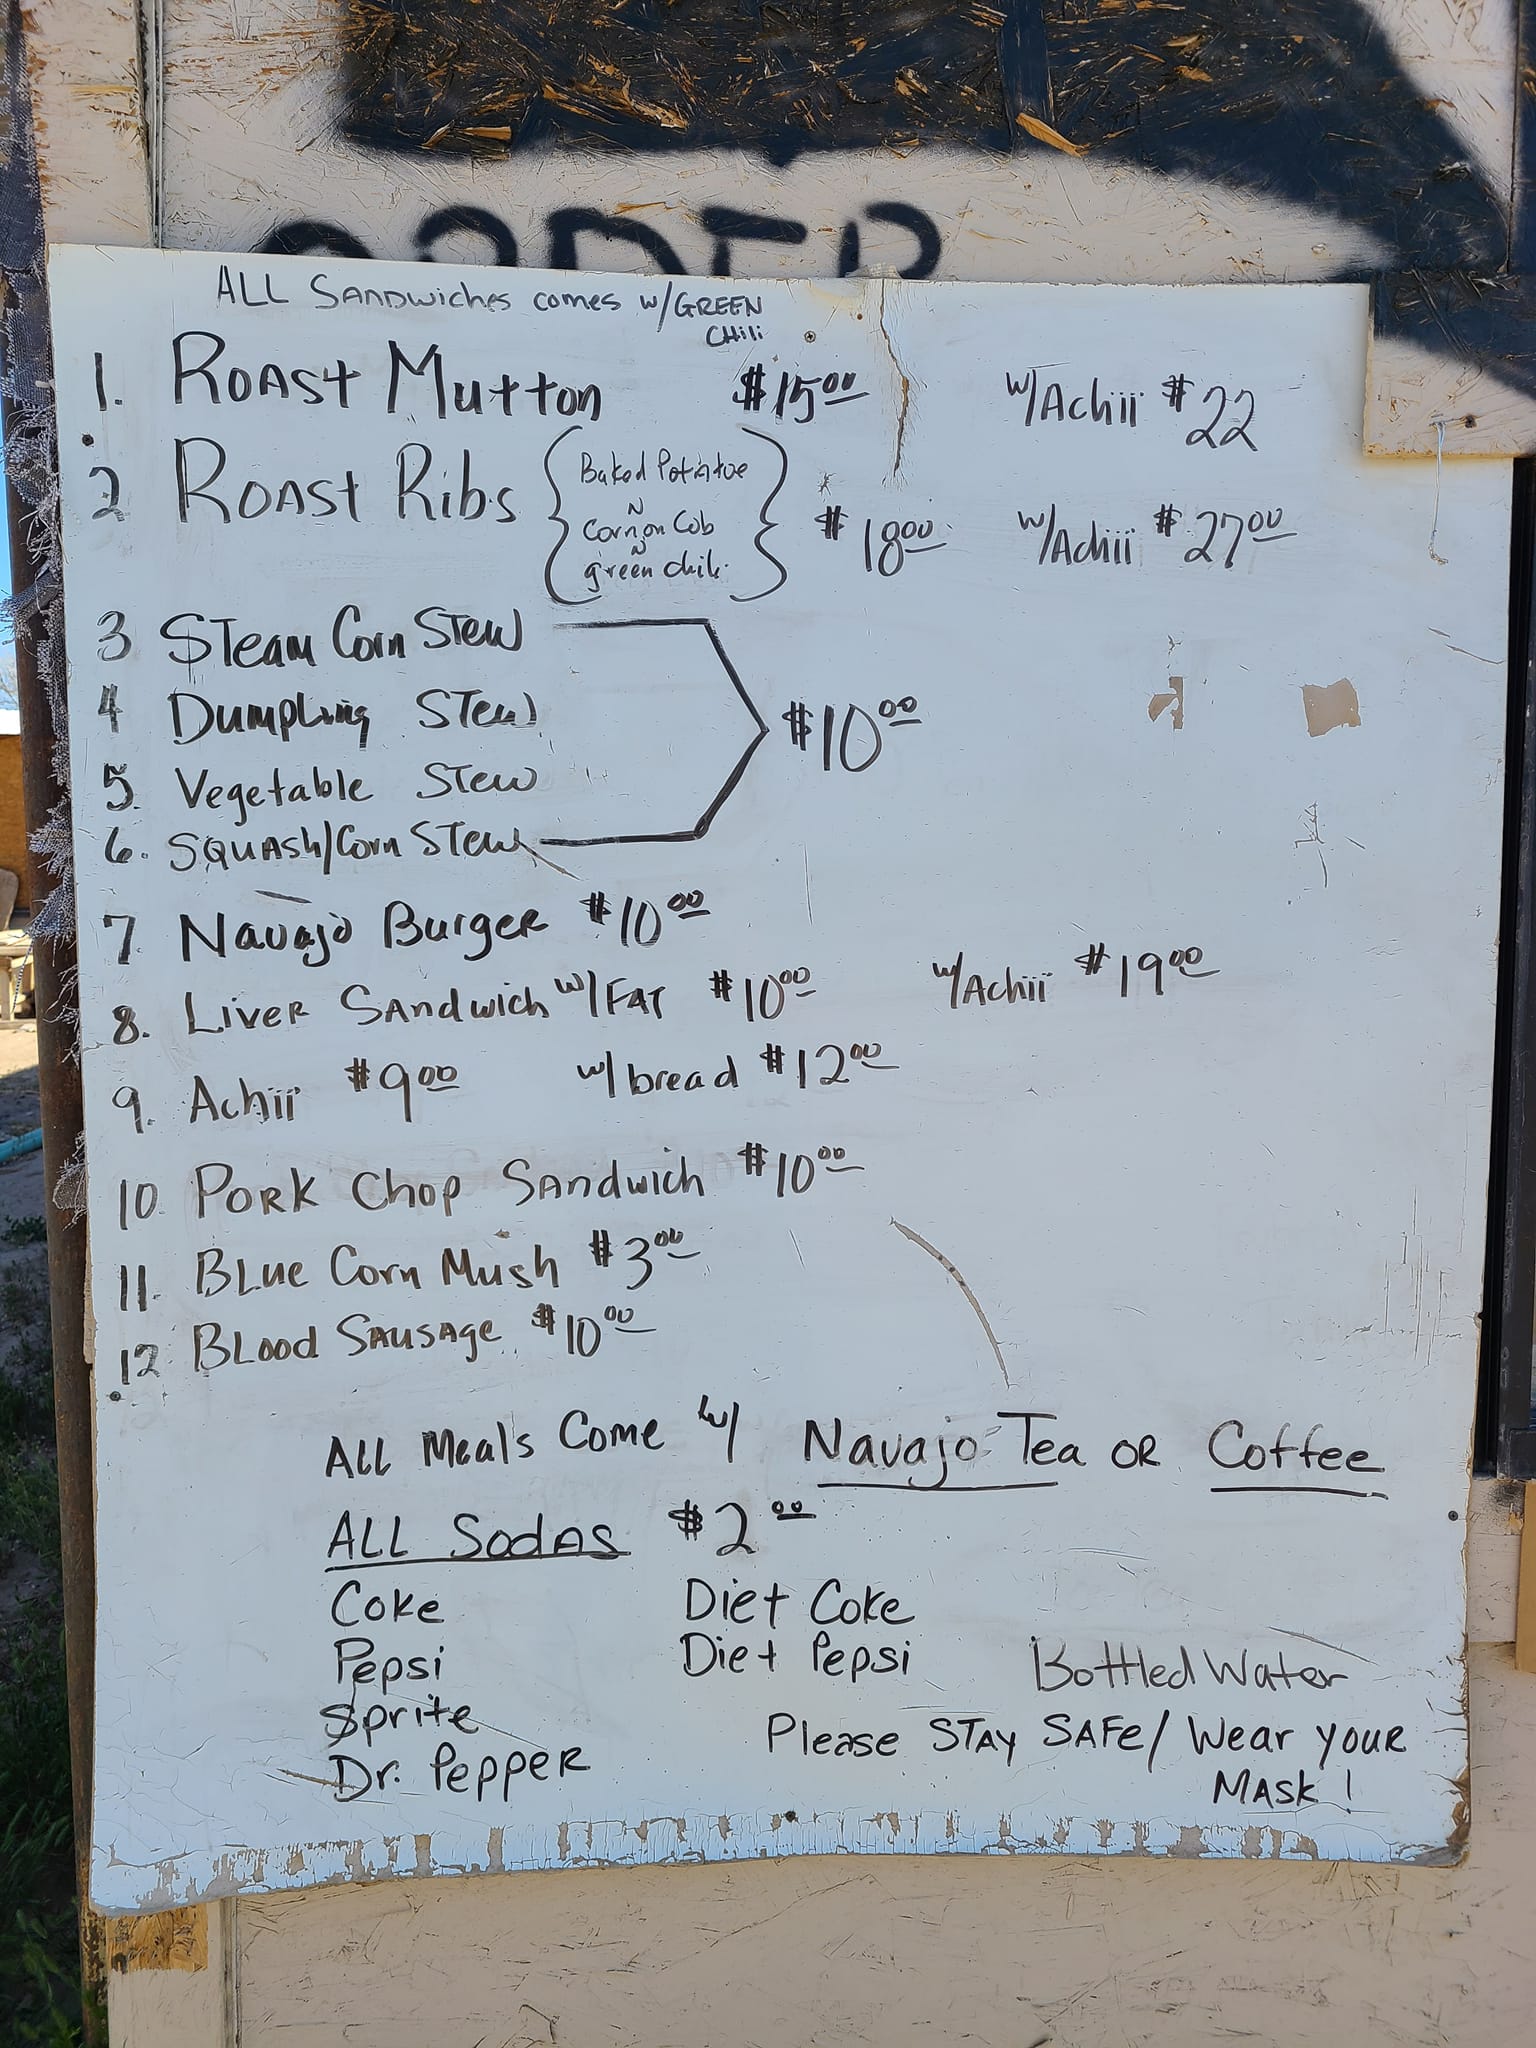 ORDER
ALL SANDwiches comes w/GREEN
CHili
1. ROASt Mutton $15.00 w/Achiii $22
2 ROASt Ribs { Baked Potatoe N Corn on Cob N green chili } $18.00 w/Achiii $27.00
3 STeam Corn STew
4 Dumpling STew
5. Vegetable STew
6. SQUASH/Corn STew
$10.00
7 Navajo Burger $10.00
8. Liver SANdwich w/FAT $10.00 w/Achiii $19.00
9. Achiii $9.00 w/bread $12.00
10 PORK Chop SANdwich $10.00
11. BLue Corn Mush $3.00
12 BLood SAUSAge $10.00
ALL MeaLs Come w/ Navajo Tea OR Coffee
ALL SodAS $2.00
Coke Diet Coke
Pepsi Diet Pepsi Bottled Water
Sprite
Dr. PePPER
Please STAY SAFe/ Wear YOUR
MASK!